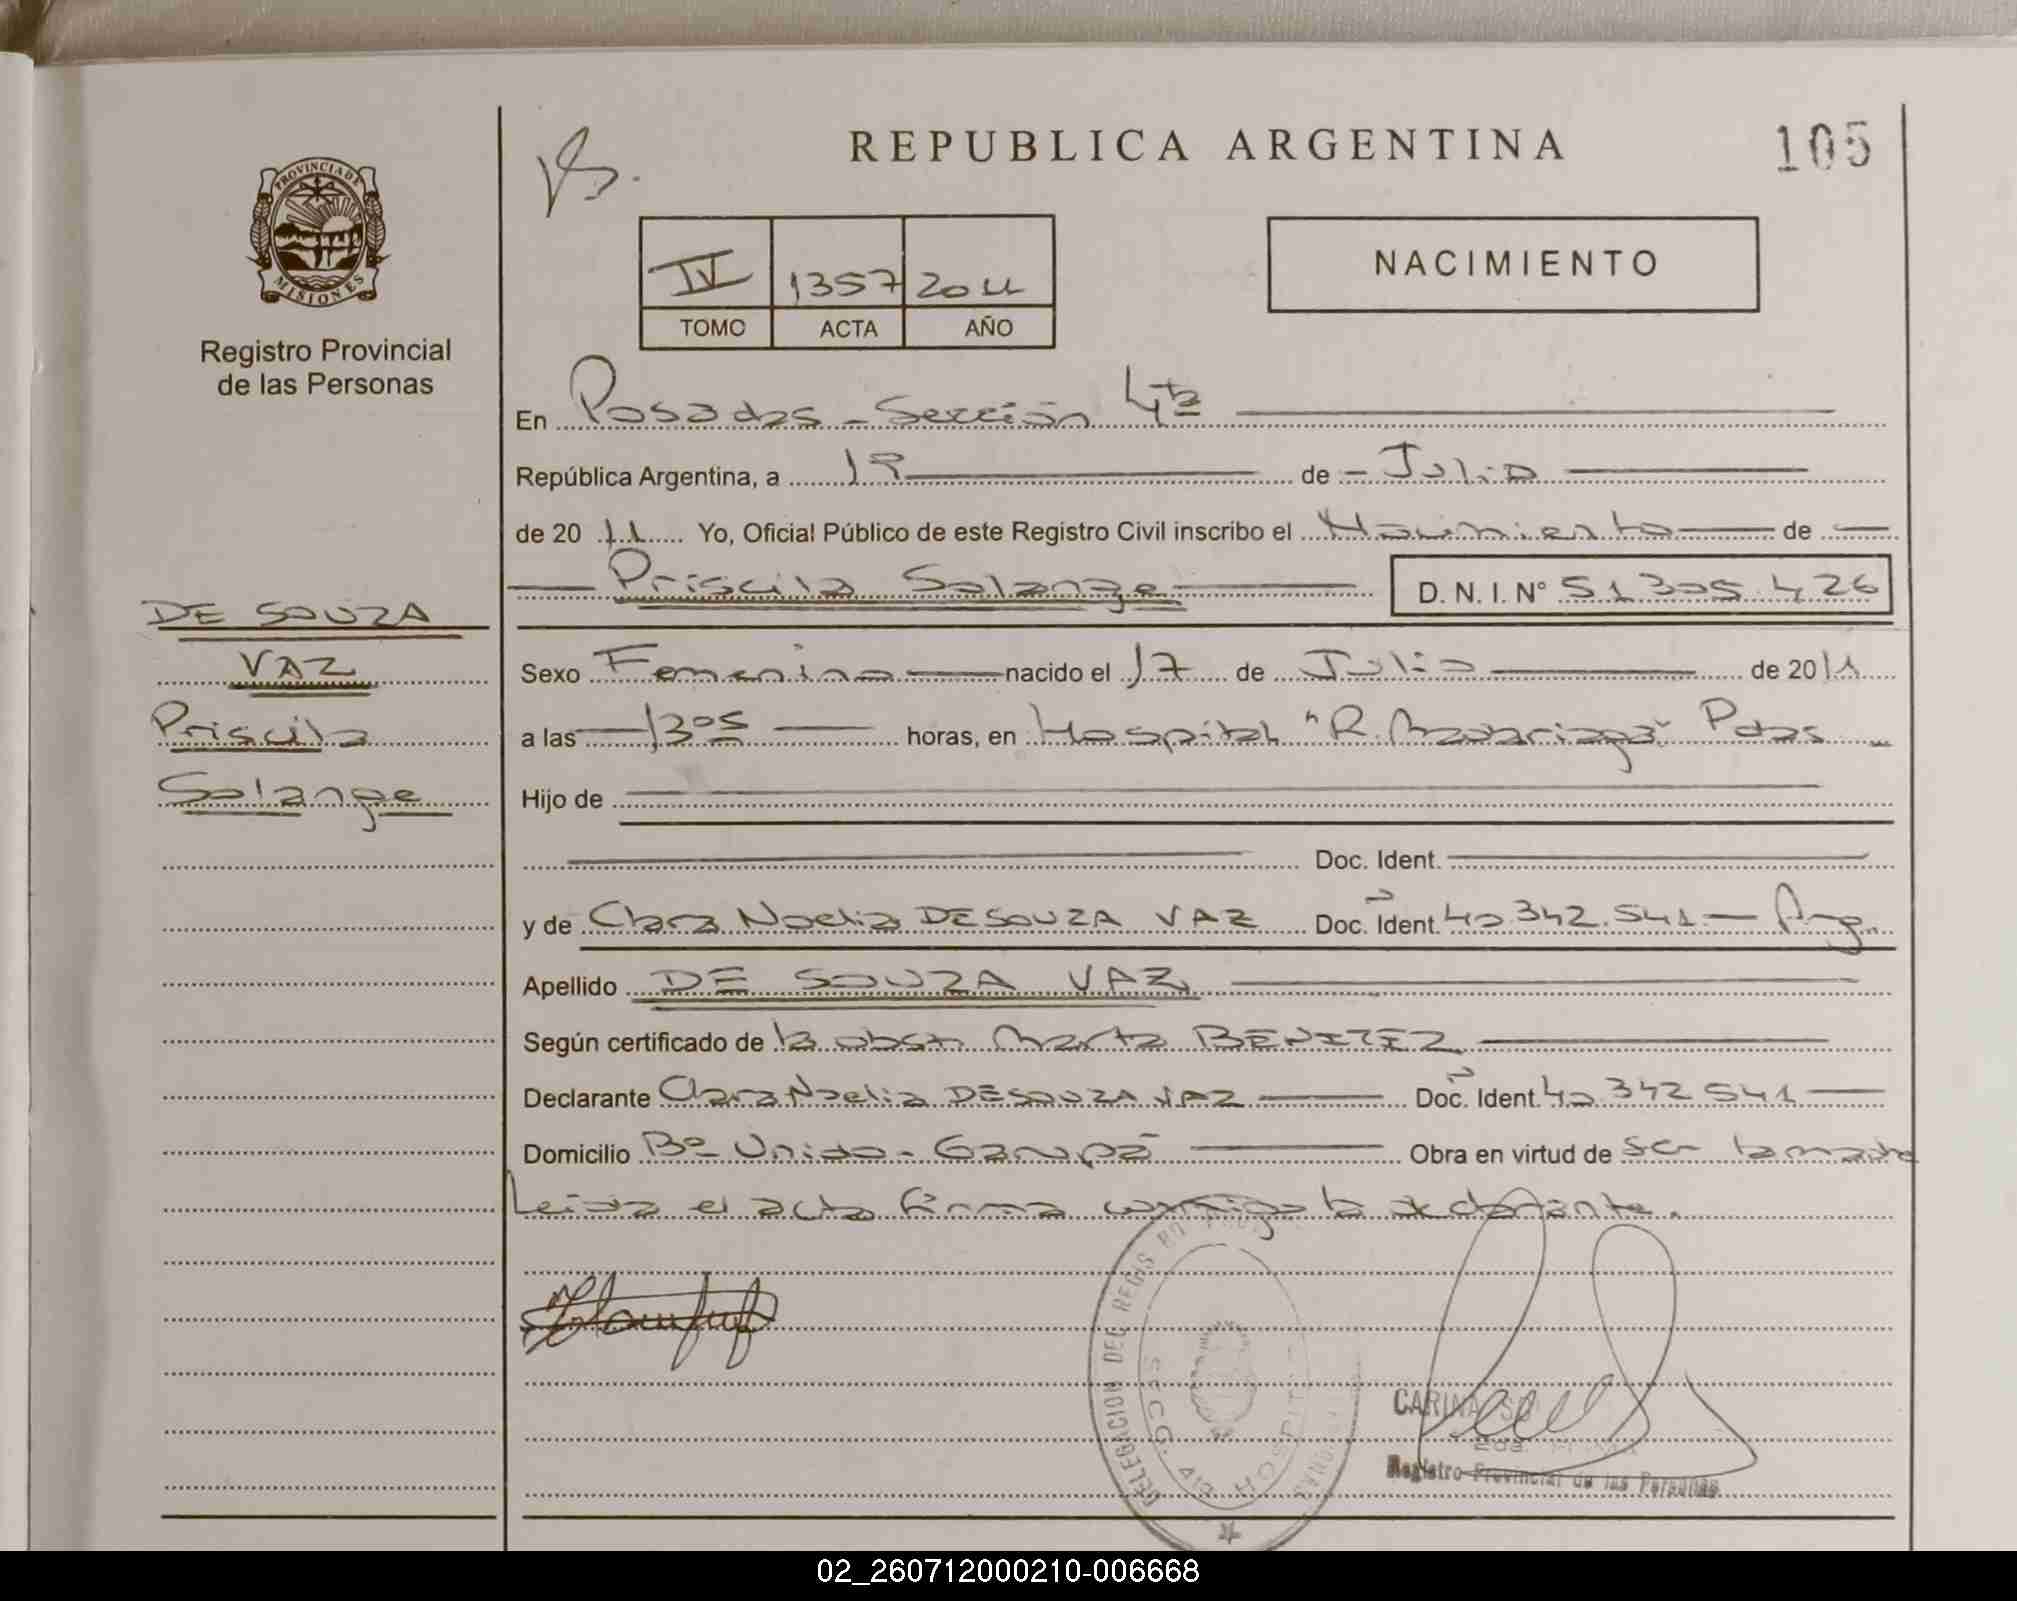 REPUBLICA ARGENTINA
105
PROVINCIA DE
MISIONES
Registro Provincial
de las Personas
IV 1357 2011
TOMO ACTA AÑO
NACIMIENTO
En Posadas - Sección 4ta
República Argentina, a 19 de Julio
de 20 11 Yo, Oficial Público de este Registro Civil inscribo el Nacimiento de
Priscila Solange D. N. I. N° 51305.426
DE SOUZA
VAZ
Priscila
Solange
Sexo Femenino nacido el 17 de Julio de 2011
a las 13 05 horas, en Hospital "R. Madariaga" Pdas
Hijo de
Doc. Ident.
y de Clara Noelia DE SOUZA VAZ Doc. Ident. 40.342.541 - Arg.
Apellido DE SOUZA VAZ
Según certificado de la obst. Marta BENITEZ
Declarante Clara Noelia DE SOUZA VAZ Doc. Ident. 40 342 541
Domicilio Bº Unido - Garupá Obra en virtud de ser la madre
Leída el acta firma conmigo la declarante.
DELEGACION DEL REGISTRO
SECC. 4ta HOSPITAL
CARINA
2da.
Registro Provincial de las Personas
02_260712000210-006668